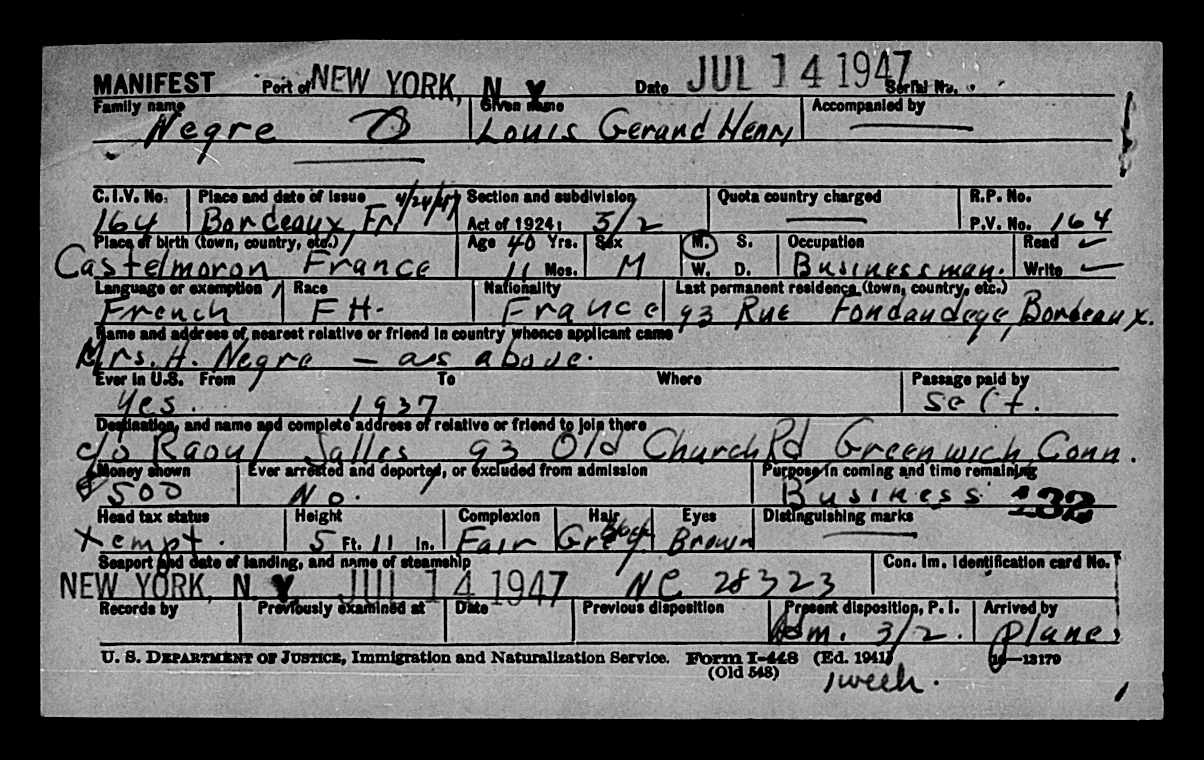 MANIFEST Port of NEW YORK, N. Y. Date JUL 14 1947 Serial No.
Family name Given name Accompanied by
Negre Louis Gerard Henry
C.I.V. No. Place and date of issue 4/24/47 Section and subdivision Quota country charged R.P. No.
164 Bordeaux, Fr Act of 1924: 3/2 P.V. No. 164
Place of birth (town, country, etc.) Age 40 Yrs. Sex M. S. Occupation Read
Castelmoron France 11 Mos. M W. D. Businessman. Write
Language or exemption Race Nationality Last permanent residence (town, country, etc.)
French FH. France 93 Rue Fondaudege, Bordeaux.
Name and address of nearest relative or friend in country whence applicant came
Mrs. H. Negre — as above.
Ever in U.S. From To Where Passage paid by
Yes. 1937 Self.
Destination, and name and complete address of relative or friend to join there
c/o Raoul Salles 93 Old Church Rd Greenwich, Conn.
Money shown Ever arrested and deported, or excluded from admission Purpose in coming and time remaining
$500 No. Business
Head tax status Height Complexion Hair Eyes Distinguishing marks
Xempt. 5 Ft. 11 In. Fair Grey Black Brown
Seaport and date of landing, and name of steamship Con. Im. Identification card No.
NEW YORK, N. Y. JUL 14 1947 NC 28323
Records by Previously examined at Date Previous disposition Present disposition, P. I. Arrived by
Adm. 3/2. plane
U. S. DEPARTMENT OF JUSTICE, Immigration and Naturalization Service. Form I-448 (Ed. 1941) 16—13179
(Old 548) 1 week.